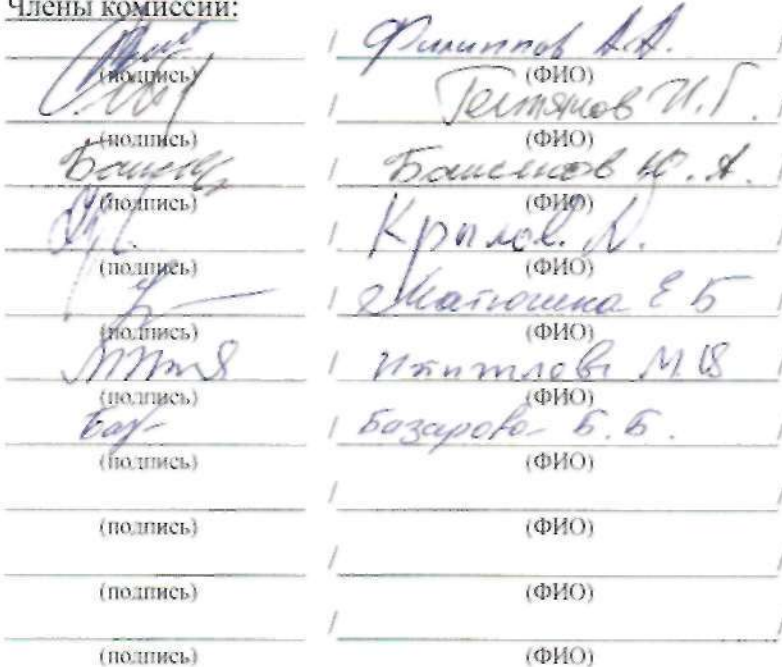 Члены комиссии:
/ Филиппов А.А.
(подпись) (ФИО)
И.Г.
(подпись) (ФИО)
/ Ю.А.
(подпись) (ФИО)
/ Крылов
(подпись) (ФИО)
/ Матюшка Е Б
(подпись) (ФИО)
/ М
(подпись) (ФИО)
/ Базарова Б.Б.
(подпись) (ФИО)
/ /
(подпись) (ФИО)
/ /
(подпись) (ФИО)
/ /
(подпись) (ФИО)